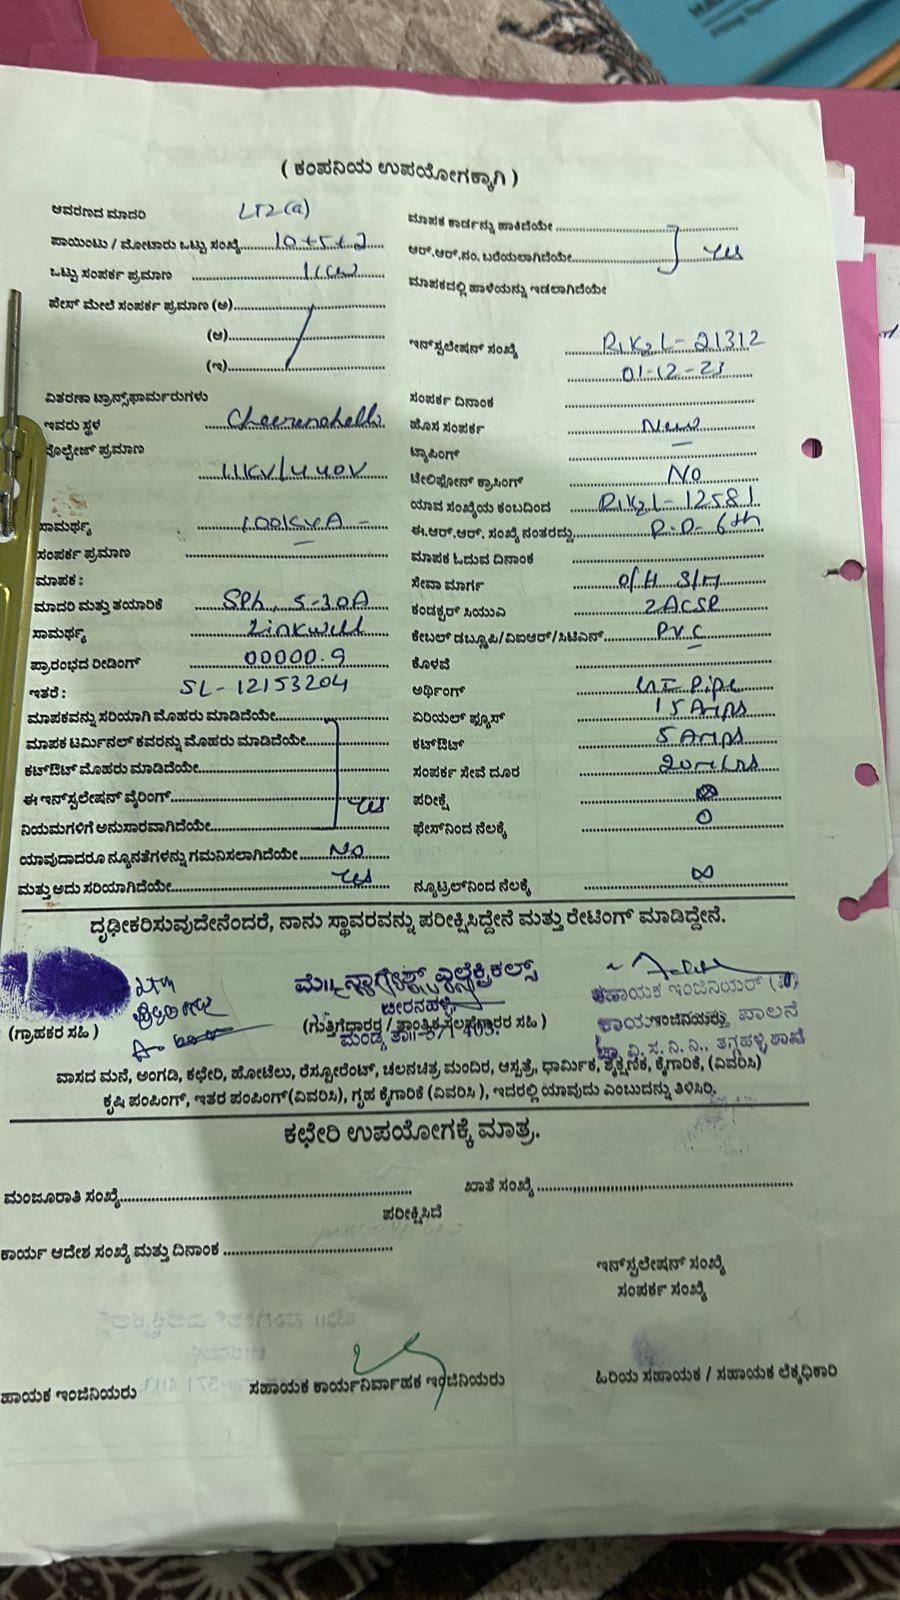 ( ಕಂಪನಿಯ ಉಪಯೋಗಕ್ಕಾಗಿ )
ಆವರಣದ ಮಾದರಿ LT2(a)
ಪಾಯಿಂಟು / ಮೋಟಾರು ಒಟ್ಟು ಸಂಖ್ಯೆ 10+5+2
ಒಟ್ಟು ಸಂಪರ್ಕ ಪ್ರಮಾಣ 1KW
ಪೇಸ್ ಮೇಲೆ ಸಂಪರ್ಕ ಪ್ರಮಾಣ (ಅ)
(ಆ)
(ಇ)
ವಿತರಣಾ ಟ್ರಾನ್ಸ್‌ಫಾರ್ಮರುಗಳು
ಇವರು ಸ್ಥಳ Cheeranahalli
ವೋಲ್ಟೇಜ್ ಪ್ರಮಾಣ
11KV/440V
ಸಾಮರ್ಥ್ಯ 100KVA
ಸಂಪರ್ಕ ಪ್ರಮಾಣ
ಮಾಪಕ :
ಮಾದರಿ ಮತ್ತು ತಯಾರಿಕೆ SPh, 5-30A
ಸಾಮರ್ಥ್ಯ Linkwell
ಪ್ರಾರಂಭದ ರೀಡಿಂಗ್ 00000.9
ಇತರೆ : SL-12153204
ಮಾಪಕವನ್ನು ಸರಿಯಾಗಿ ಮೊಹರು ಮಾಡಿದೆಯೇ
ಮಾಪಕ ಟರ್ಮಿನಲ್ ಕವರನ್ನು ಮೊಹರು ಮಾಡಿದೆಯೇ
ಕಟ್‌ಔಟ್ ಮೊಹರು ಮಾಡಿದೆಯೇ
ಈ ಇನ್‌ಸ್ಟಲೇಷನ್ ವೈರಿಂಗ್ Yes
ನಿಯಮಗಳಿಗೆ ಅನುಸಾರವಾಗಿದೆಯೇ
ಯಾವುದಾದರೂ ನ್ಯೂನತೆಗಳನ್ನು ಗಮನಿಸಲಾಗಿದೆಯೇ No
ಮತ್ತು ಅದು ಸರಿಯಾಗಿದೆಯೇ Yes
ಮಾಪಕ ಕಾರ್ಡನ್ನು ಹಾಕಿದೆಯೇ
ಆರ್.ಆರ್.ನಂ. ಬರೆಯಲಾಗಿದೆಯೇ Yes
ಮಾಪಕದಲ್ಲಿ ಹಾಳೆಯನ್ನು ಇಡಲಾಗಿದೆಯೇ
ಇನ್‌ಸ್ಟಲೇಷನ್ ಸಂಖ್ಯೆ R1K2L-21312
01-12-23
ಸಂಪರ್ಕ ದಿನಾಂಕ
ಹೊಸ ಸಂಪರ್ಕ New
ಟ್ಯಾಪಿಂಗ್
ಟೇಲಿಫೋನ್ ಕ್ರಾಸಿಂಗ್ No
ಯಾವ ಸಂಖ್ಯೆಯ ಕಂಬದಿಂದ R1K2L-12581
ಈ.ಆರ್.ಆರ್. ಸಂಖ್ಯೆ ನಂತರದ್ದು R.D. 6th
ಮಾಪಕ ಓದುವ ದಿನಾಂಕ
ಸೇವಾ ಮಾರ್ಗ O/H S/M
ಕಂಡಕ್ಟರ್ ಸಿಯುಎ 2ACSR
ಕೇಬಲ್ ಡಬ್ಲೂಪಿ/ವಿಐಆರ್/ಸಿಟಿಎಸ್ PVC
ಕೊಳವೆ
ಅರ್ಥಿಂಗ್ GI Pipe
ಏರಿಯಲ್ ಫ್ಯೂಸ್ 15 Amps
ಕಟ್‌ಔಟ್ 5 Amps
ಸಂಪರ್ಕ ಸೇವೆ ದೂರ 20 mtrs
ಪರೀಕ್ಷೆ
ಫೇಸ್‌ನಿಂದ ನೆಲಕ್ಕೆ 0
ನ್ಯೂಟ್ರಲ್‌ನಿಂದ ನೆಲಕ್ಕೆ ∞
ದೃಢೀಕರಿಸುವುದೇನೆಂದರೆ, ನಾನು ಸ್ಥಾವರವನ್ನು ಪರೀಕ್ಷಿಸಿದ್ದೇನೆ ಮತ್ತು ರೇಟಿಂಗ್ ಮಾಡಿದ್ದೇನೆ.
ಮೆ|| ನಾಗೇಶ್ ಎಲೆಕ್ಟ್ರಿಕಲ್ಸ್
ಚೀರನಹಳ್ಳಿ
ಮಂಡ್ಯ ತಾ||-571 403.
(ಗ್ರಾಹಕರ ಸಹಿ )
(ಗುತ್ತಿಗೆದಾರರ / ತಾಂತ್ರಿಕ ಸಲಹೆಗಾರರ ಸಹಿ )
ಸಹಾಯಕ ಇಂಜಿನಿಯರ್ (ವಿ)
ಇಂಜಿನಿಯರು
ಚಾ.ವಿ.ಸ.ನಿ.ನಿ., ತಗ್ಗಹಳ್ಳಿ ಶಾಖೆ
ವಾಸದ ಮನೆ, ಅಂಗಡಿ, ಕಛೇರಿ, ಹೋಟೆಲು, ರೆಸ್ಟೋರೆಂಟ್, ಚಲನಚಿತ್ರ ಮಂದಿರ, ಆಸ್ಪತ್ರೆ, ಧಾರ್ಮಿಕ, ಶೈಕ್ಷಣಿಕ, ಕೈಗಾರಿಕೆ, (ವಿವರಿಸಿ)
ಕೃಷಿ ಪಂಪಿಂಗ್, ಇತರ ಪಂಪಿಂಗ್(ವಿವರಿಸಿ), ಗೃಹ ಕೈಗಾರಿಕೆ (ವಿವರಿಸಿ ), ಇದರಲ್ಲಿ ಯಾವುದು ಎಂಬುದನ್ನು ತಿಳಿಸಿರಿ.
ಕಛೇರಿ ಉಪಯೋಗಕ್ಕೆ ಮಾತ್ರ.
ಮಂಜೂರಾತಿ ಸಂಖ್ಯೆ ಖಾತೆ ಸಂಖ್ಯೆ
ಪರೀಕ್ಷಿಸಿದೆ
ಕಾರ್ಯ ಆದೇಶ ಸಂಖ್ಯೆ ಮತ್ತು ದಿನಾಂಕ
ಇನ್‌ಸ್ಟಲೇಷನ್ ಸಂಖ್ಯೆ
ಸಂಪರ್ಕ ಸಂಖ್ಯೆ
ಹಾಯಕ ಇಂಜಿನಿಯರು ಸಹಾಯಕ ಕಾರ್ಯನಿರ್ವಾಹಕ ಇಂಜಿನಿಯರು ಹಿರಿಯ ಸಹಾಯಕ / ಸಹಾಯಕ ಲೆಕ್ಕಧಿಕಾರಿ